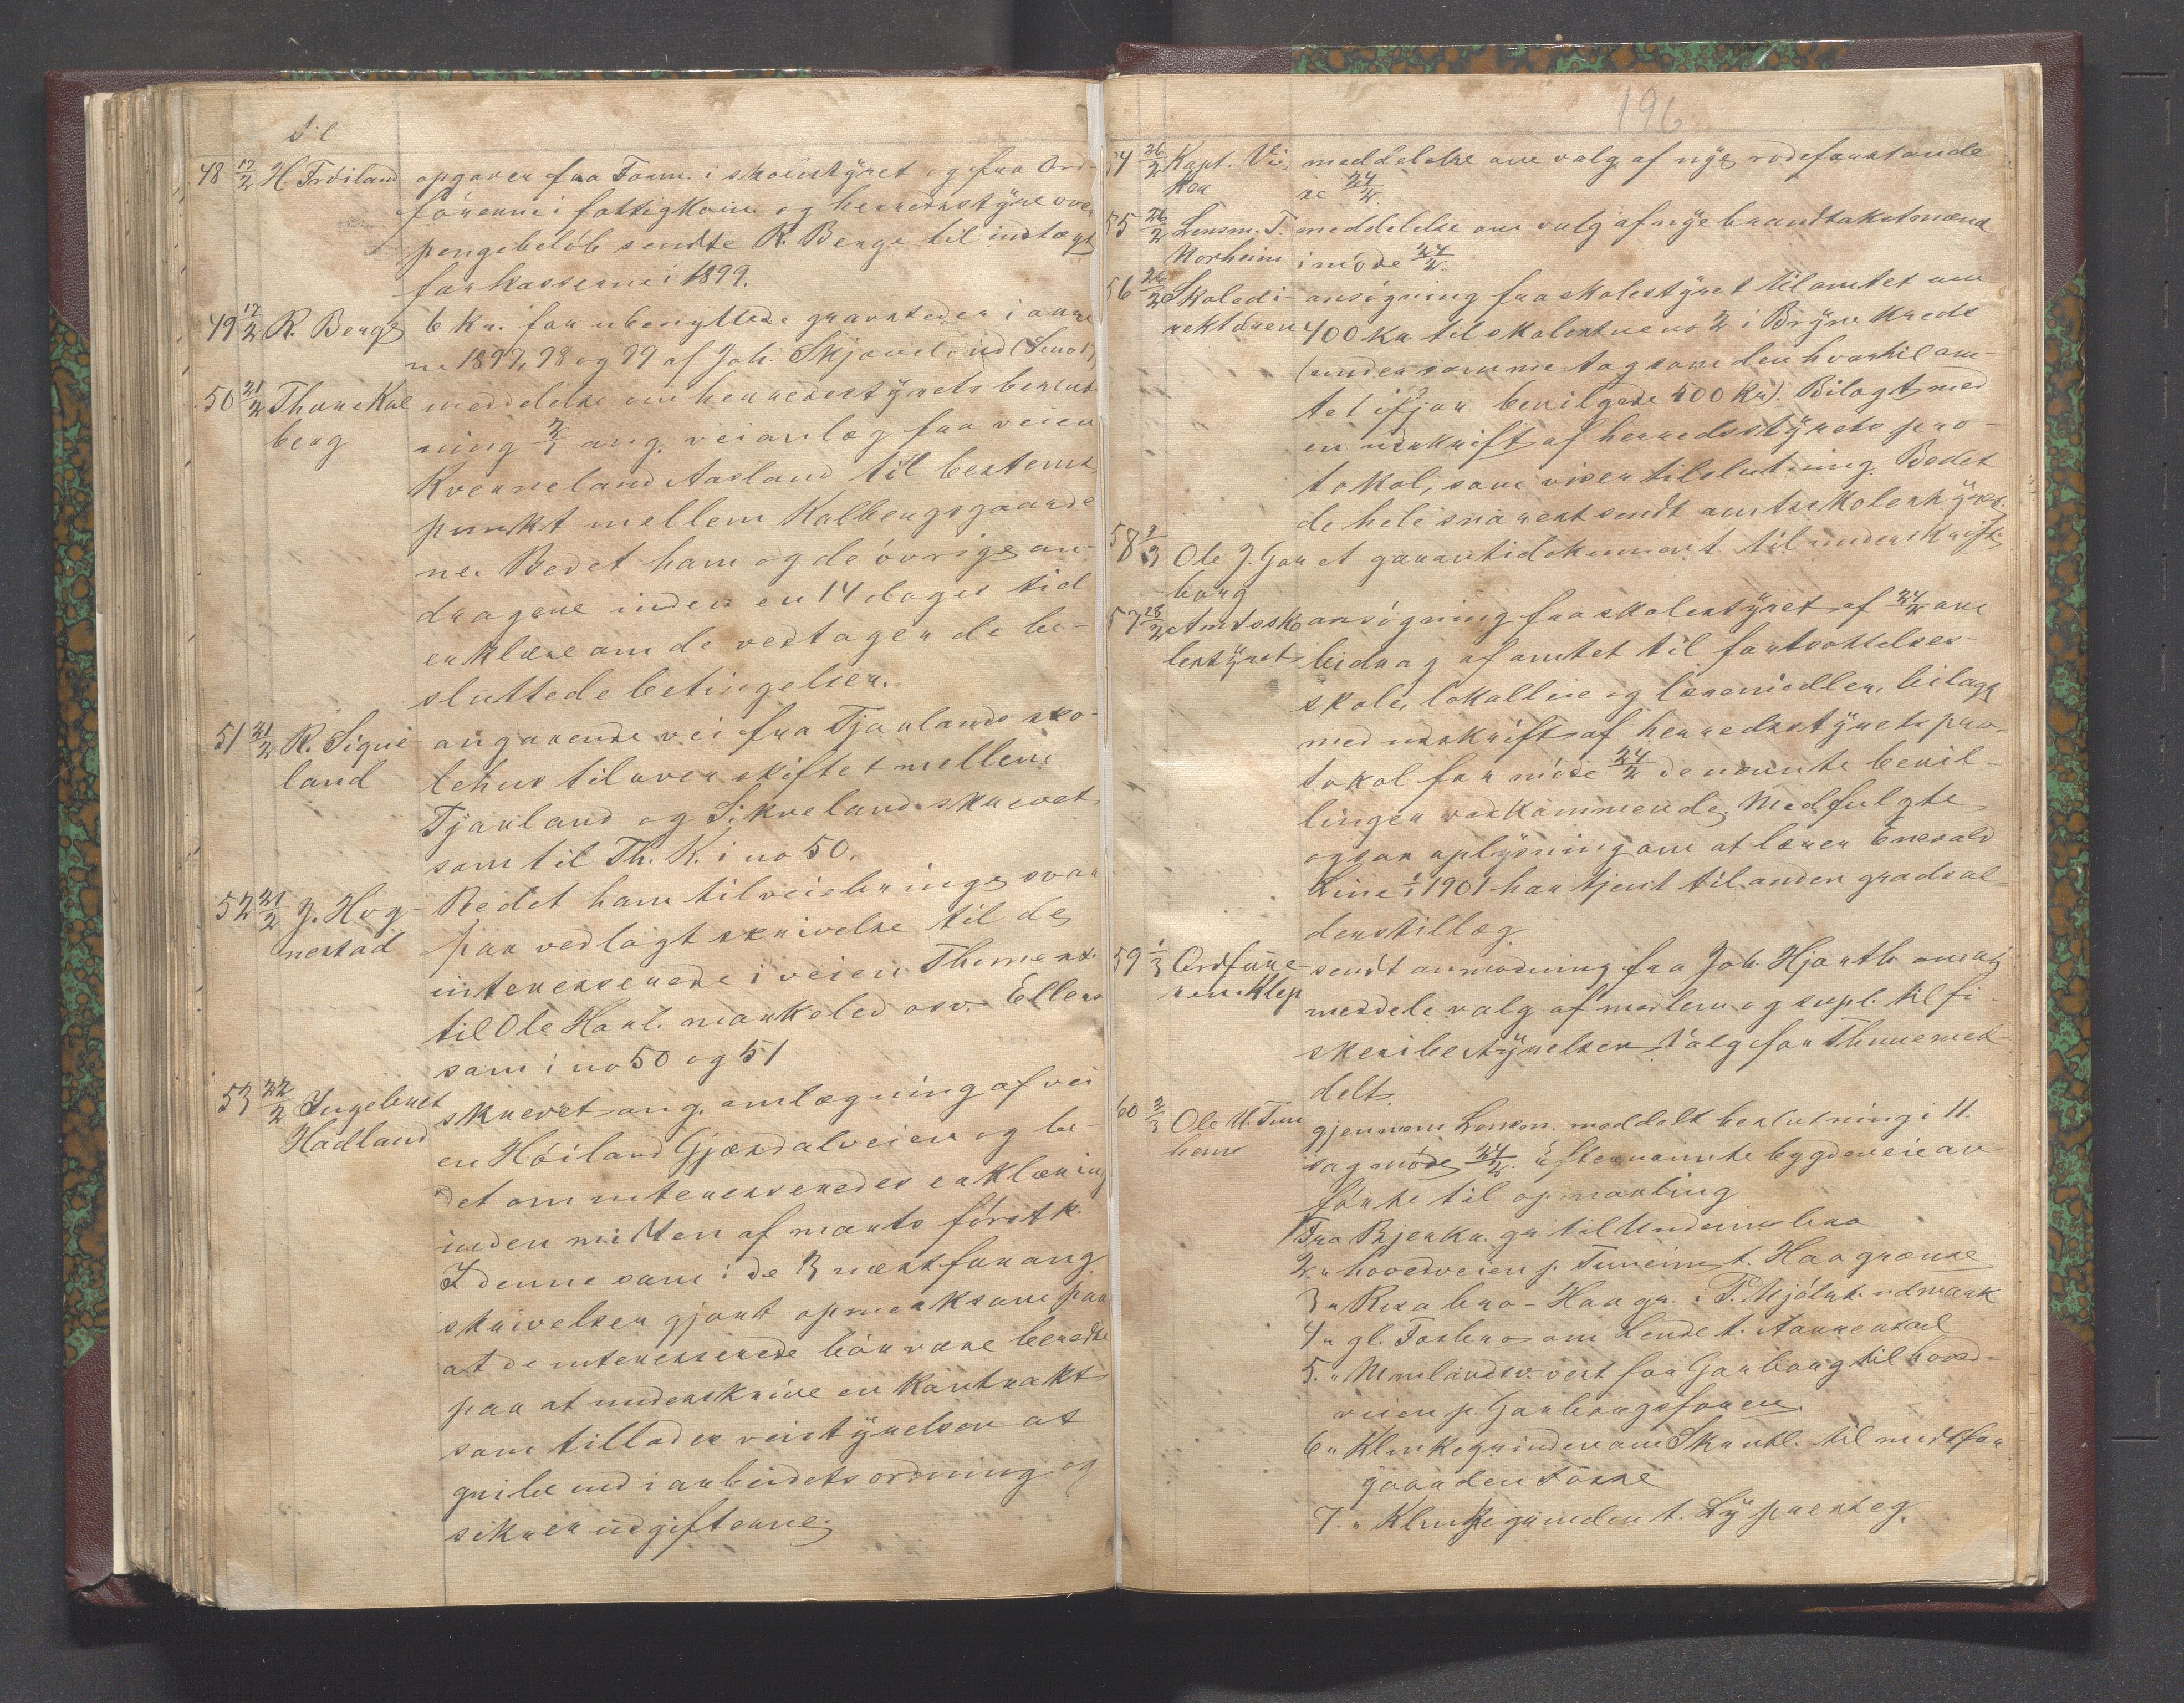 Til
48 17/2 H. Tröiland opgaver fra Form. i skolestyret og fra Ord-
förerne i fattigkom. og herredsstyre over
pengebelöb sendte R. Berge til indtægt
for kasserne i 1899.
49 17/2 R. Berge 6 kr. for ubenyttede gravsteder i aare
ne 1897, 98 og 99 af Joh. Skjæveland
50 21/2 Thore Kal meddelse om herredsstyrets beslut
berg ning 2/1 ang. veianlæg fra veien
Kverneland Aasland til bestemt
punkt mellem Kalbergsgaarde
ne. Bedet ham og de övrige an-
dragere inden en 14 dages tid
erklære om de vedtager de be-
sluttede betingelser.
51 21/2 R. Sigve- angaaende vei fra Tjaaland sko-
land lehus til over skiftet mellem
Tjaaland og Sikveland skrevet
som til Th. K. i no 50.
52 21/2 J. Hog- Bedet ham tilveiebringe svar
nestad paa vedlagt skrivelse til de
interesserede i veien Themest.
til Ole Haal. markeled osv. Ellers
som i no 50 og 51
53 22/2 Ingebret skrevet ang. omlægning af vei
Hadland en Höiland Gjæsdalveien og be-
det om interesseredes erklæring
inden midten af marts förstk.
I denne som i de 3 næstforang
skrivelser gjort opmerksom paa
at de interesserede bör være beredte
paa at underskrive en kontrakt
som tillader veistyrelsen at
gribe ind i arbeidets ordning og
sikrer udgifterne.
196
54 26/2 Kapt. Vi- meddelelse om valg af nye rodeforstande
ken re 24/2.
55 26/2 Lensm. T. meddelelse om valg af nye brandtakstmænd
Norheim i möde 24/2.
56 26/2 Skoledi- ansögning fra skolestyret til amtet om
rektören 400 kr. til skolestue no 2 i Bryne kreds
(under samme tag som den hvortil am-
tet ifjor bevilgede 400 kr). Bilagt med
en udskrift af herredsstyrets pro-
tokol, som viser tilslutning. Bedet
de hele snarest sendt amtsskolestyret.
58 1/3 Ole J. Gar et garantidokument til underskrift
borg
57 28/2 Amtssko ansögning fra skolestyret af 24/2 om
lestyret bidrag af amtet til fortsættelses-
skole, lokalleie og læremidler, bilagt
med udskrift af herredsstyrets pro-
tokol for möde 24/2 de nævnte bevil-
linger vedkommende. Medfulgte
ogsaa oplysning om at lærer Enevald
Line 1/1 1901 har tjent til anden grads al-
derstillæg.
59 1/3 Ordföre- sendt anmodning fra Joh. Hjorth om at
ren i Klep meddele valg af medlem og supl. til fi-
skeribestyrelsen. Valg for Thime med
delt.
60 2/3 Ole U. Tun gjennem Lensm. meddelt beslutning i 11.
heim sag möde 24/2. efternævnte bygdeveie an-
förte til opmaaling
1 Fra Bjerkr. gr. til Undeim bro
2. " hovedveien p. Tuneim t. Haa grænse
3 " Rosa bro - Haa gr. i P. Mjölhs. udmark
4 " gl. Fosbro om Lende t. Aarrestad
5. " Mælandsv. vest for Garborg til hoved-
veien p. Garborgsforen.
6 " Klinkegrinden om Skrutl. til midtfor
gaarden Fosse
7. " Klinkegrinden t. Ly presteg.